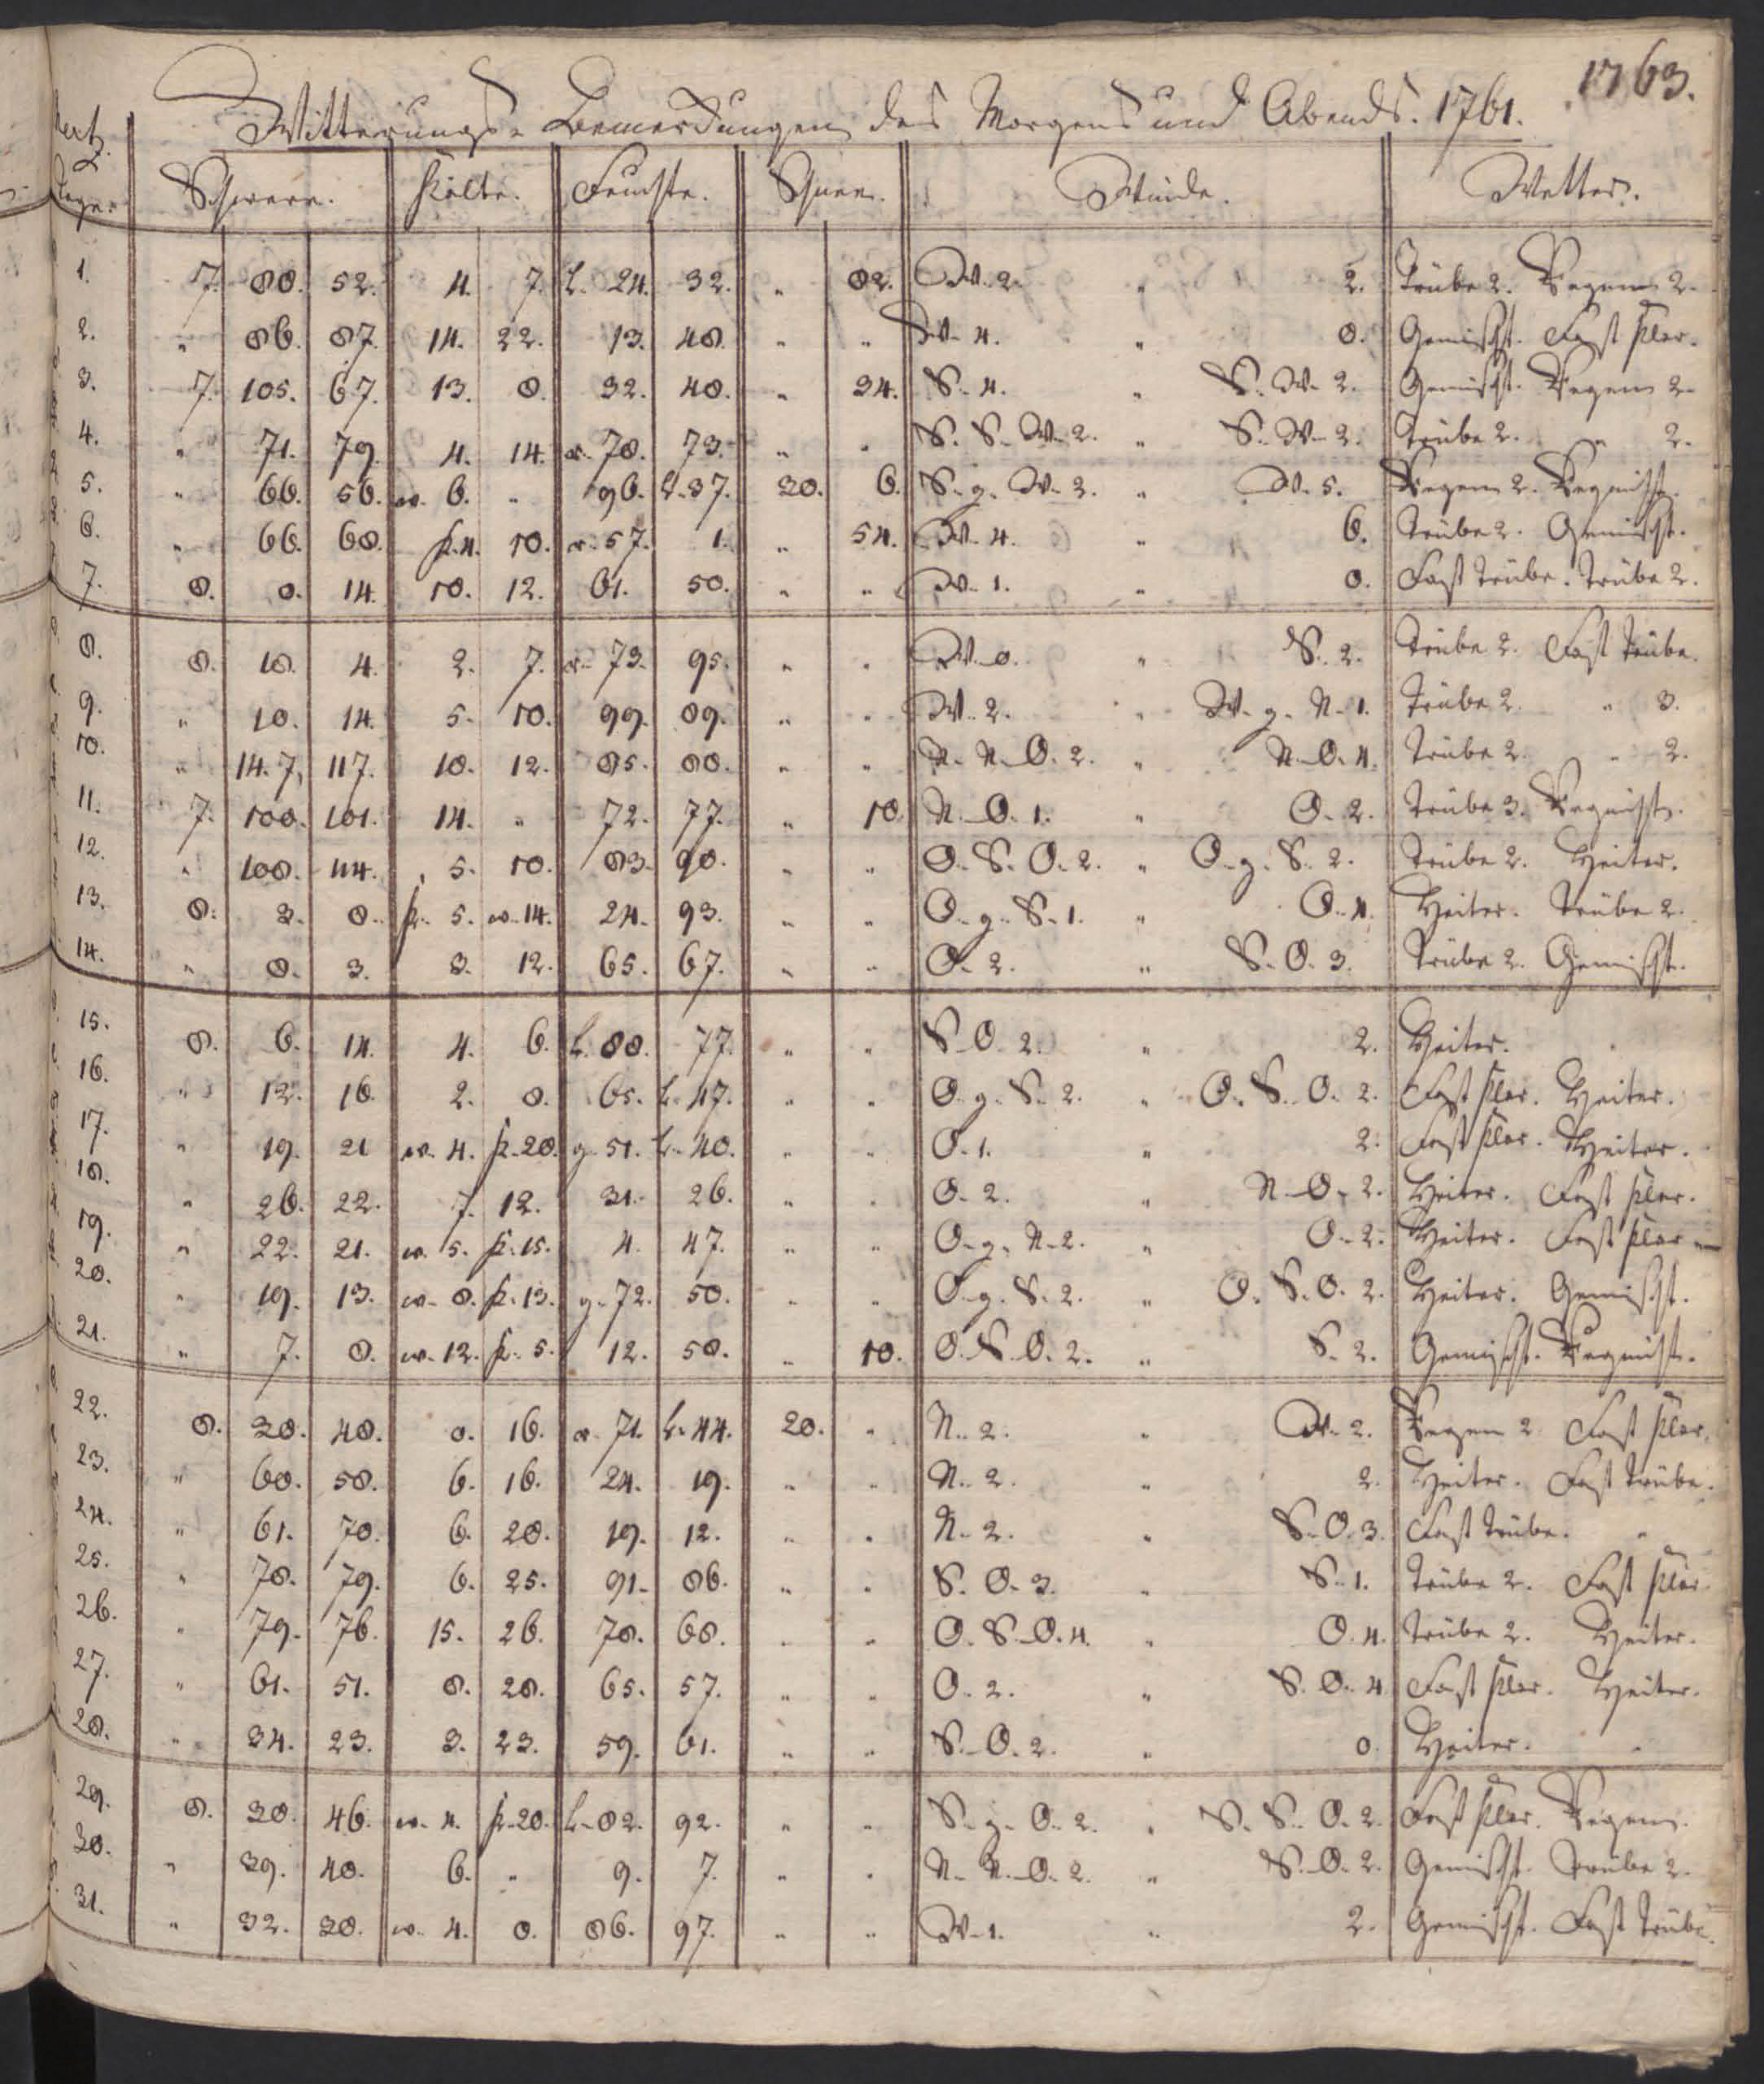 1763.
Witterungs-Bemerkungen des Morgens und Abends. 1761.
Schwere. Kälte. Feuchte. Winde. Wetter.
1. 7. 88. 52. 4. 7. L. 24. 32. " 82. W. 2. " 2. Trübe 2. Regen 2.
2. " 86. 87. 14. 22. 13. 48. " " W. 4. " 0. Gemischt. Fast klar.
3. 7. 105. 67. 13. 8. 32. 40. " 34. S. 4. " S. W. 2. Gemischt. Regen 2.
4. " 71. 79. 4. 14. 78. 73. " " S. S. W. 2. " S. W. 2. Trübe 2. " 2.
5. " 66. 56. w. 6. " 96. L. 37. 20. 6. S. g. W. 3. " W. 5. Regen 2.
6. " 66. 68. k. 4. 10. 57. 1. " 54. W. 4. " 6. Trübe 2. Gemischt.
7. 8. 0. 14. 10. 12. 61. 50. " " W. 1. " 0. Fast trübe. Trübe 2.
8. 8. 18. 4. 2. 7. 73. 95. " " W. 0. " S. 2. Trübe 2. Fast trübe.
9. " 10. 14. 5. 10. 99. 89. " " W. 2. " W. g. N. 1. Trübe 2. " 3.
10. " 14. 7, 117. 10. 12. 85. 80. " " N. N. O. 2. " N. O. 4. Trübe 2. " 2.
11. 7. 100. 101. 14. " 72. 77. " 10. N. O. 1. " O. 2. Trübe 3.
12. " 108. 114. 5. 10. 83. 90. " " O. S. O. 2. " O. g. S. 2. Trübe 2. Heiter.
13. 8. 3. 8. k. 5. w. 14. 24. 93. " " O. g. S. 1. " O. 4. Heiter. Trübe 2.
14. " 8. 3. 3. 12. 65. 67. " " O. 2. " S. O. 3. Trübe 2. Gemischt.
15. 8. 6. 14. 4. 6. L. 88. 77. " " S. O. 2. " 2. Heiter.
16. " 12. 16. 2. 8. 65. L. 47. " " O. g. S. 2. " O. S. O. 2. Fast klar. Heiter.
17. " 19. 21 w. 4. k. 20. g. 51. L. 40. " " O. 1. " 2. Fast klar. Heiter.
18. " 26. 22. 7. 12. 31. 26. " " O. 2. " N. O. 2. Heiter. Fast klar.
19. " 22. 21. w. 5. k. 15. 4. 47. " " O. g. N. 2. " O. 2. Heiter. Fast klar
20. " 19. 13. w. 8. k. 13. g. 72. 50. " " O. g. S. 2. " O. S. O. 2. Heiter. Gemischt.
21. " 7. 8. w. 12. k. 5. 12. 58. " 10. O. S. O. 2. " S. 2. Gemischt.
22. 8. 30. 48. 0. 16. 71. L. 44. 20. " N. 2. " W. 2. Regen 2. Fast klar.
23. " 60. 58. 6. 16. 24. 19. " " N. 2. " 2. Heiter. Fast trübe.
24. " 61. 70. 6. 20. 19. 12. " " N. 2. " S. O. 3. Fast trübe. "
25. " 78. 79. 6. 25. 91. 86. " " S. O. 3. " S. 1. Trübe 2. Fast klar.
26. " 79. 76. 15. 26. 78. 68. " " O. S. O. 4. " O. 4. Trübe 2. Heiter.
27. " 61. 51. 8. 28. 65. 57. " " O. 2. " S. O. 4. Fast klar. Heiter.
28. " 34. 23. 3. 23. 59. 61. " " S. O. 2. " 0. Heiter. "
29. 8. 38. 46. w. 4. k. 20. L. 82. 92. " " S. g. O. 2. " S. S. O. 2. Fast klar. Regen.
30. " 39. 40. 6. " 9. 7. " " N. N. O. 2. " S. O. 2. Gemischt. Trübe 2.
31. " 32. 30. w. 4. 0. 86. 97. " " W. 1. " 2. Gemischt. Fast trübe.